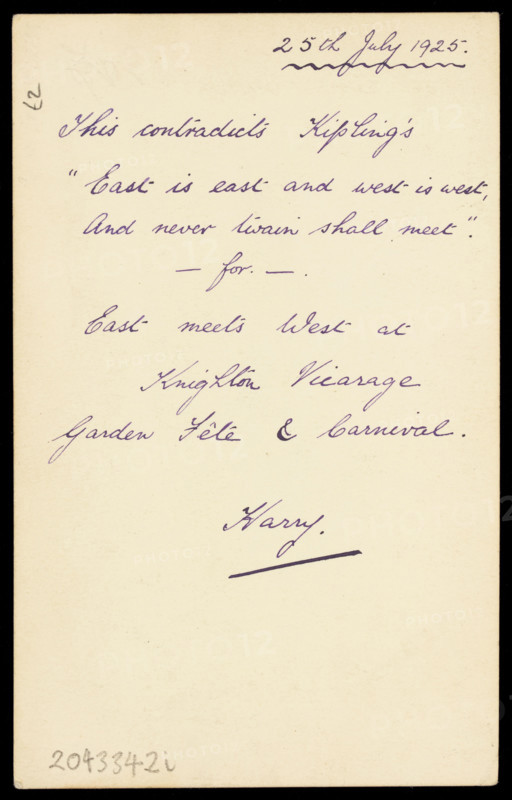 25th July 1925.
This contradicts Kipling's
"East is east and west is west,
And never twain shall meet".
— for. — .
East meets West at
Knighton Vicarage
Garden Fête & Carnival.
Harry.
2043342i